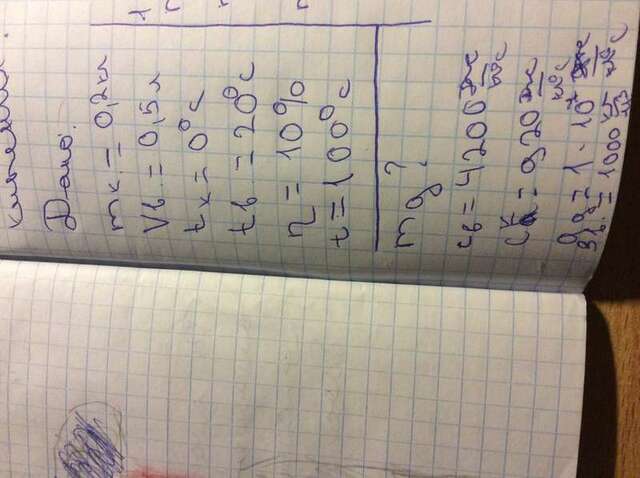 кипения.
Дано:
mк. = 0,2 кг
Vв. = 0,5 л
tк = 0°C
tв = 20°C
η = 10%
t = 100°C
mg?
cв = 4200 Дж/кг°C
cк = 920 Дж/кг°C
g = 1·10⁷ Дж/кг
ρв. = 1000 кг/м³